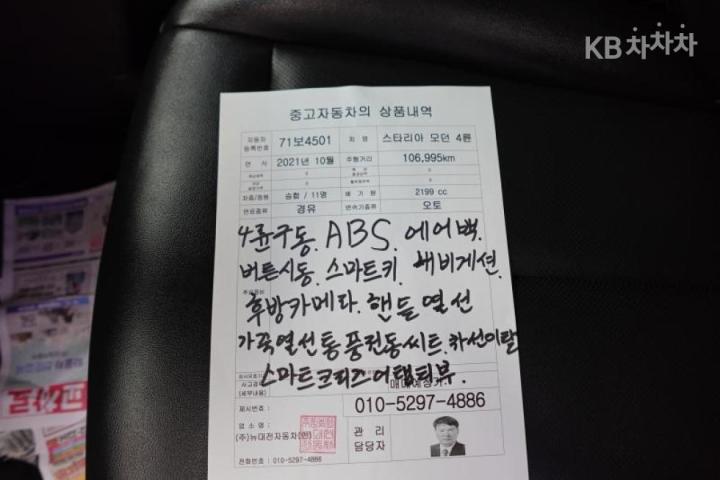 KB차차차
중고자동차의 상품내역
자동차 등록번호 71보4501 차 명 스타리아 모던 4륜
연 식 2021년 10월 주행거리 106,995km
차종/정원 승합 / 11명 배 기 량 2199 cc
연료종류 경유 변속기종류 오토
4륜구동. ABS. 에어백.
버튼시동. 스마트키. 내비게션.
후방카메라. 핸들열선
가죽열선통풍전동씨트. 차선이탈
스마트크리즈 어탭티뷰.
(세부내용)
제시번호 : 010-5297-4886
업 소 명 :
(주)뉴대전자동차(인) 관 리 담당자
전화번호 : 010-5297-4886